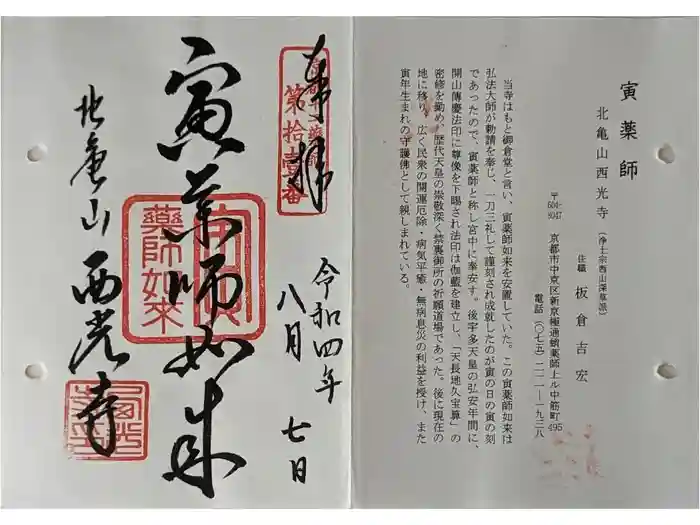 寅薬師
北亀山西光寺（浄土宗西山深草派）
住職 板倉吉宏
〒604-8047 京都市中京区新京極通蛸薬師上ル中筋町495
電話（〇七五）二二一―一九三八
当寺はもと御倉堂と言い、寅薬師如来を安置していた。この寅薬師如来は
弘法大師が勅請を奉じ、一刀三礼して謹刻され成就したのが寅の日の寅の刻
であったので、寅薬師と称し宮中に奉安す。後宇多天皇の弘安年間に、
開山傳慶法印に尊像を下賜され法印は伽藍を建立し、「天長地久宝算」の
密修を勤め、歴代天皇の崇敬深く禁裏御所の祈願道場であった。後に現在の
地に移り、広く民衆の開運厄除・病気平癒・無病息災の利益を授け、また
寅年生まれの守護佛として親しまれている。
奉拝
第拾壹番
令和四年
八月 七日
寅薬師如来
藥師如來
北亀山 西光寺